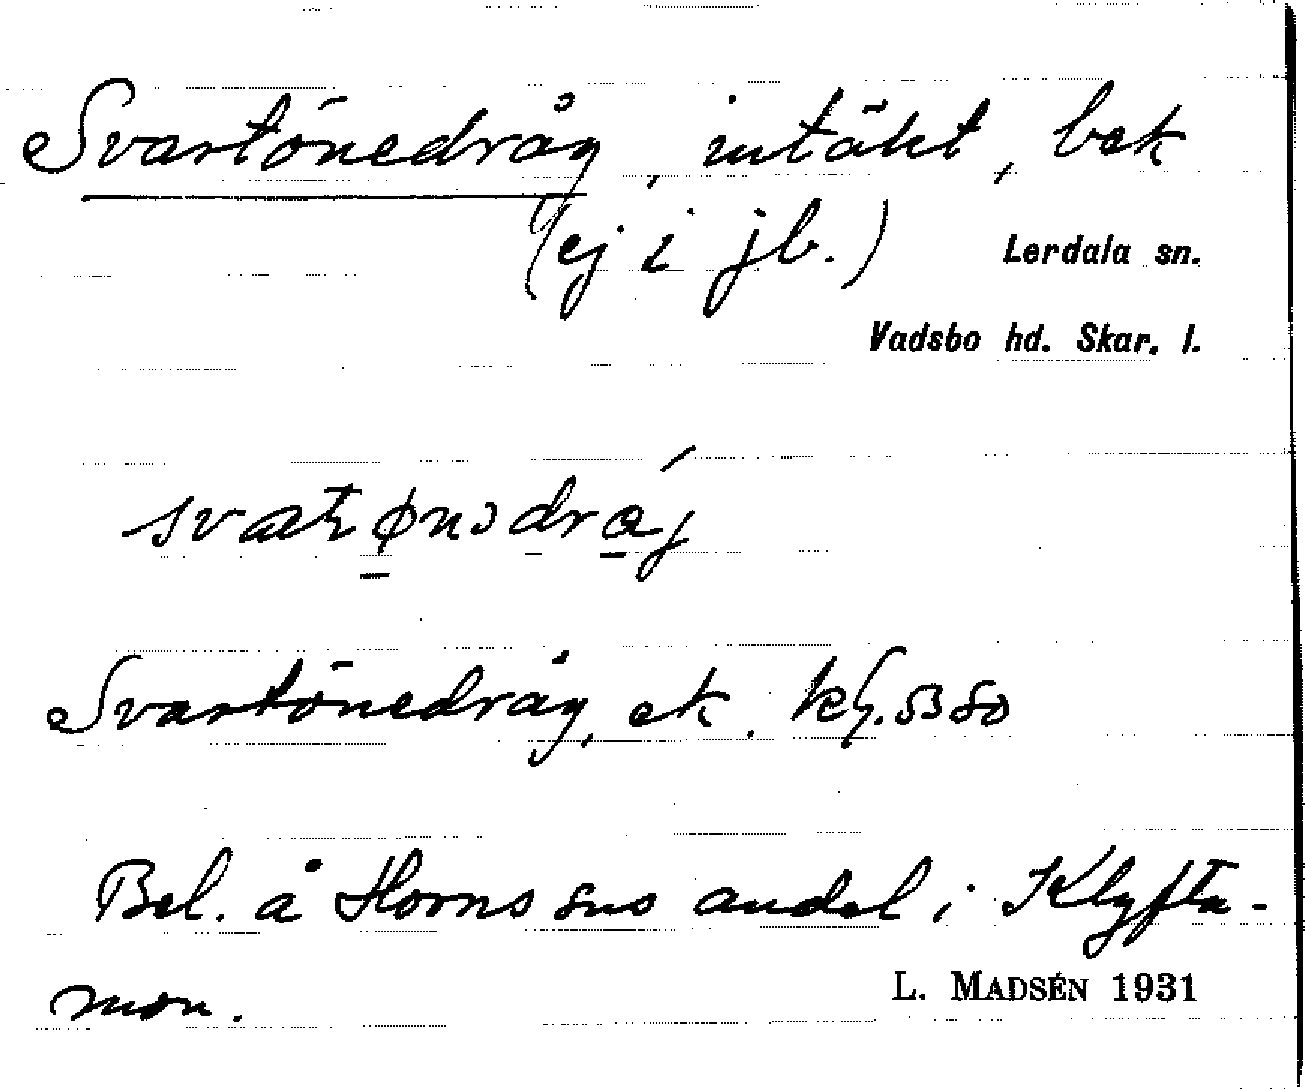 Svartönedråg, intäkt, bek
(ej i jb.)
Lerdala sn.
Vadsbo hd. Skar. l.
Svartönedråg, ek.
Bel. å Horns sns andel i Klyfta-
mon.
L. MADSÉN 1931